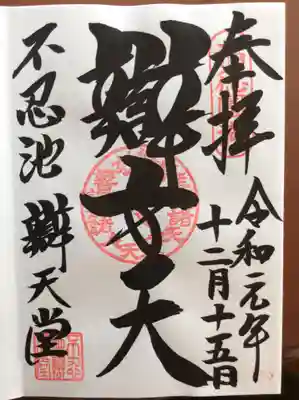 奉拝
令和元年
十二月十五日
辯才天
不忍池 辯天堂